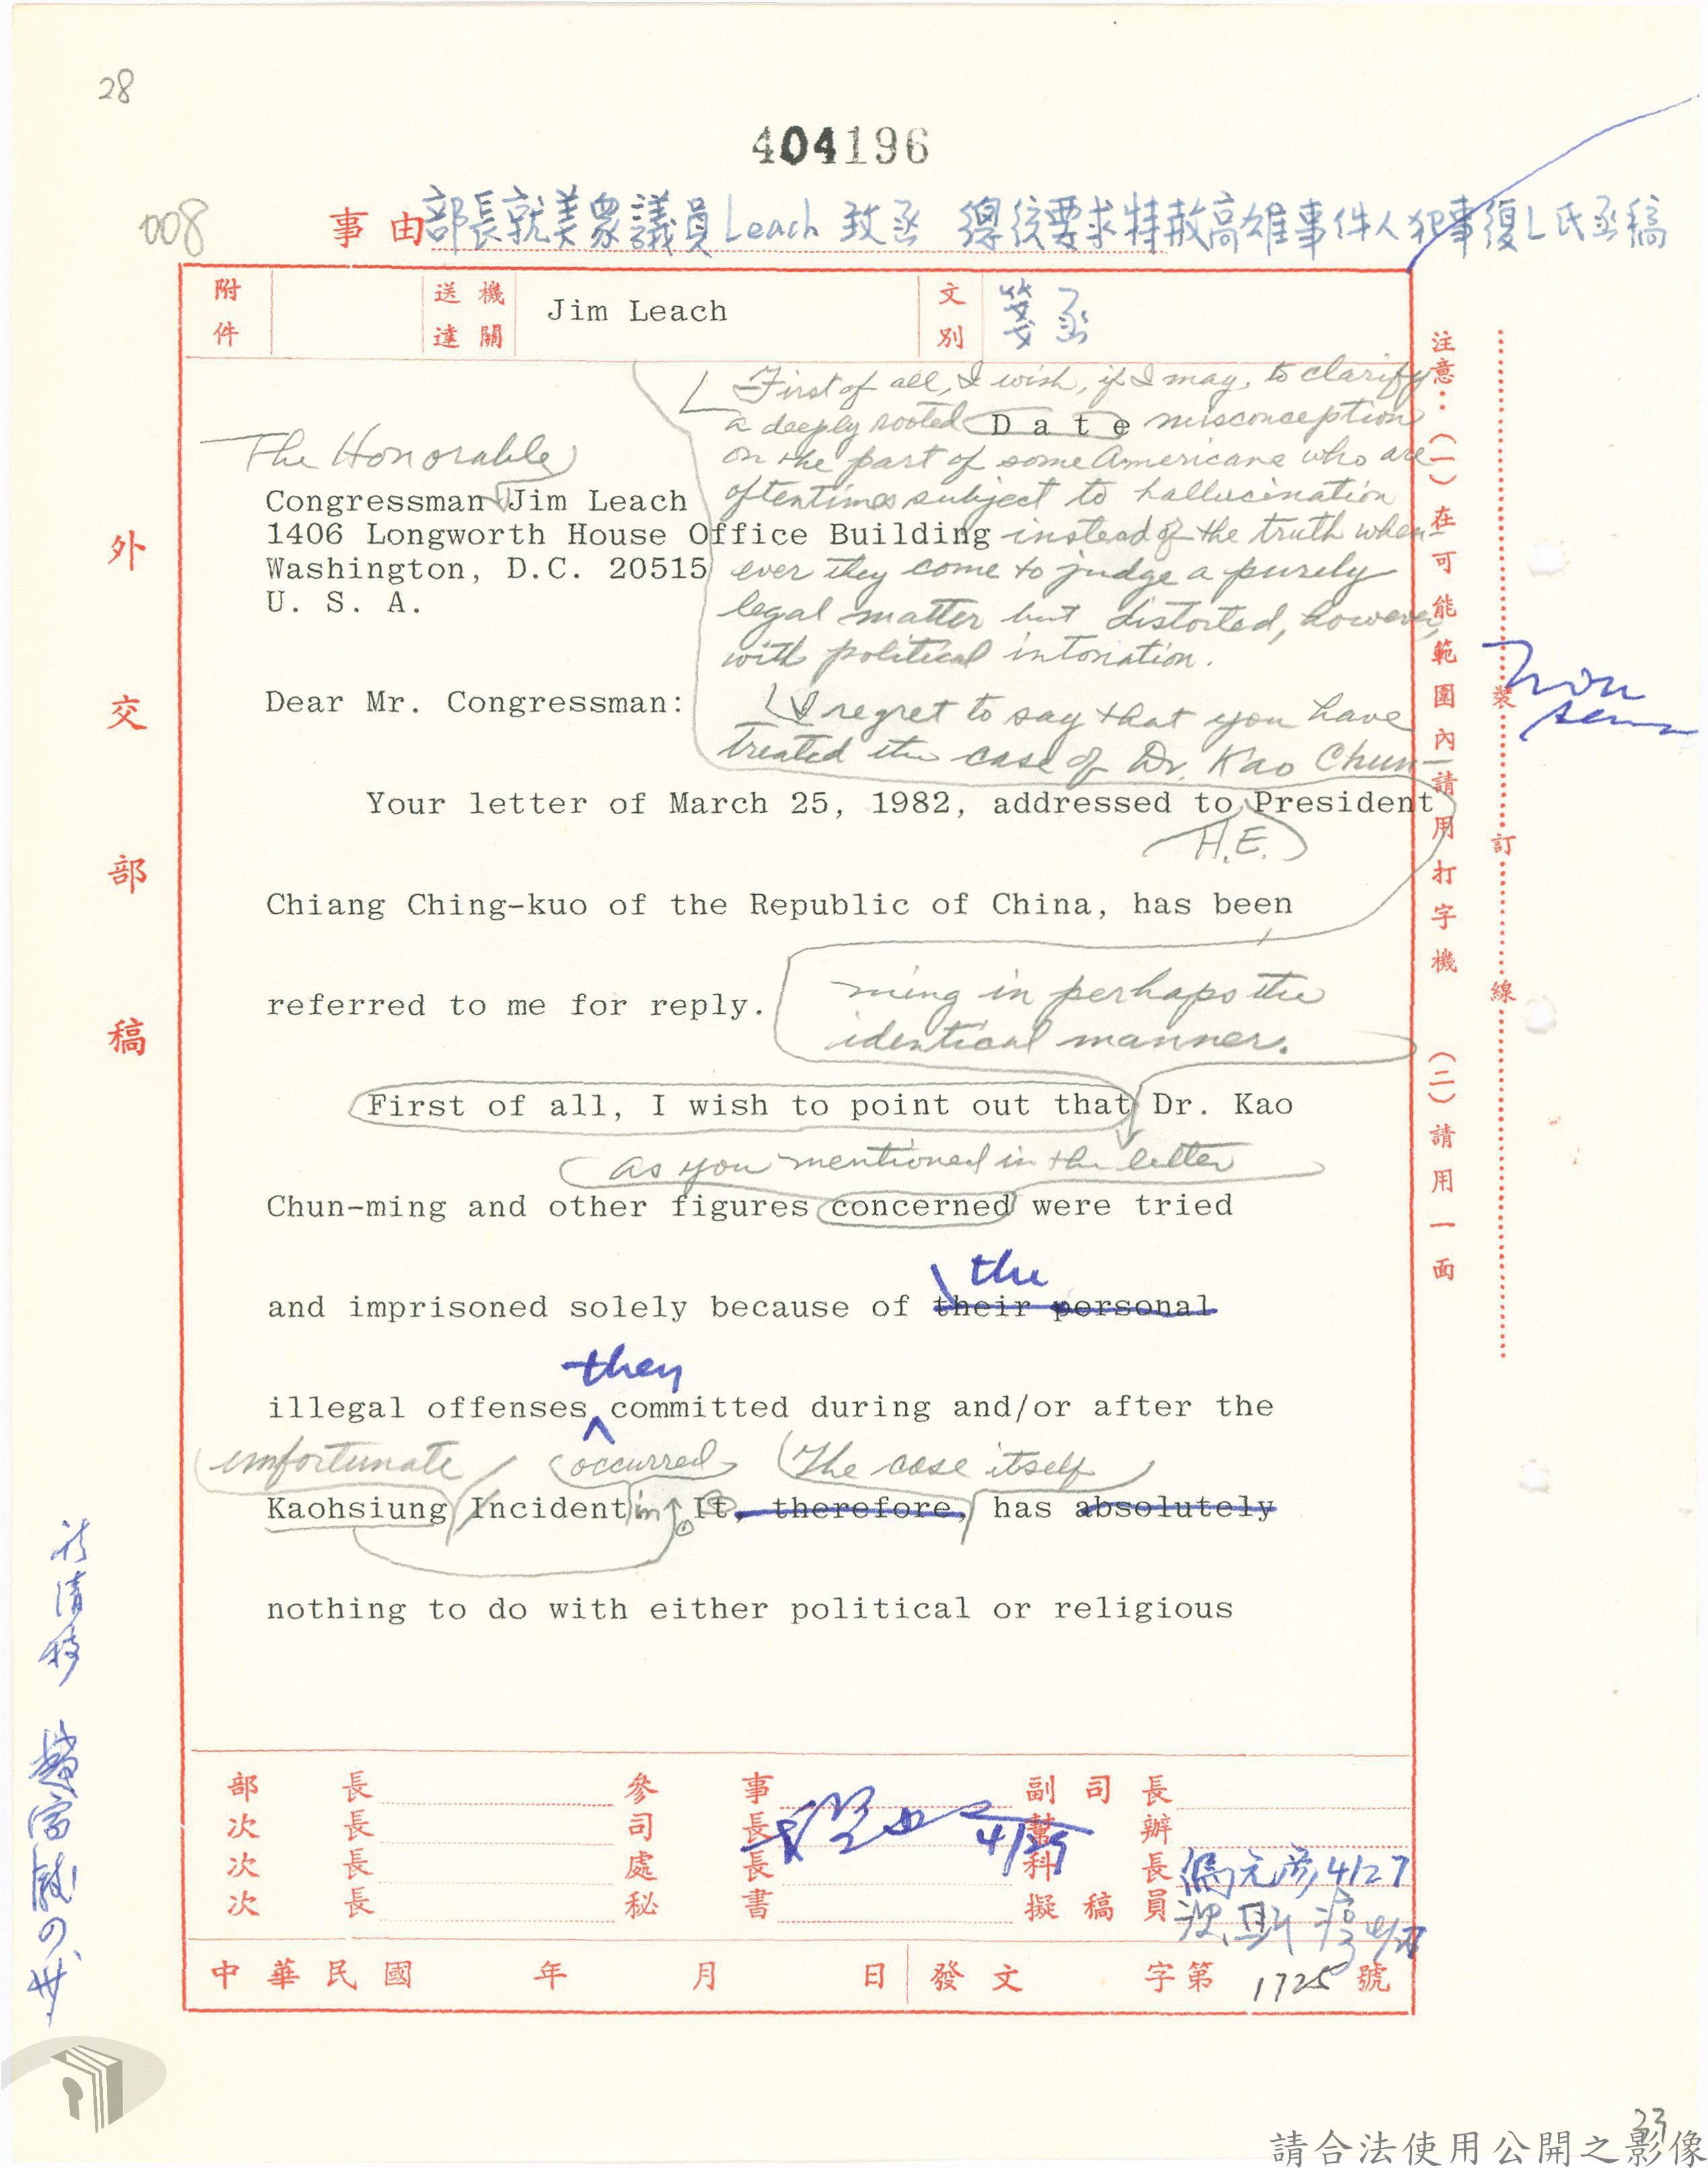 28
404196
008
事由 部長就美眾議員Leach致函 總統要求特赦高雄事件人犯事復L氏函稿
附件
送達機關
Jim Leach
文別
箋函
First of all, I wish, if I may, to clarify
a deeply rooted misconception
Date
on the part of some Americans who are
oftentimes subject to hallucination
instead of the truth when-
ever they come to judge a purely
legal matter but distorted, however,
with political intonation.
I regret to say that you have
treated the case of Dr. Kao Chun-
ming in perhaps the
identical manner.
The Honorable
Congressman Jim Leach
1406 Longworth House Office Building
Washington, D.C. 20515
U. S. A.
Dear Mr. Congressman:
Your letter of March 25, 1982, addressed to President
H.E.
Chiang Ching-kuo of the Republic of China, has been
referred to me for reply.
First of all, I wish to point out that Dr. Kao
as you mentioned in the letter
Chun-ming and other figures concerned were tried
the
and imprisoned solely because of their personal
they
illegal offenses committed during and/or after the
unfortunate occurred The case itself
Kaohsiung Incident in It, therefore, has absolutely
nothing to do with either political or religious
外交部稿
注意：(一)在可能範圍內請用打字機 (二)請用一面
裝訂線
部長 參事 副司長
次長 司長 幫辦
4/29
次長 處長 科長
4/27
次長 秘書 擬稿員
中華民國 年 月 日 發文 字第 1725 號
33
請合法使用公開之影像